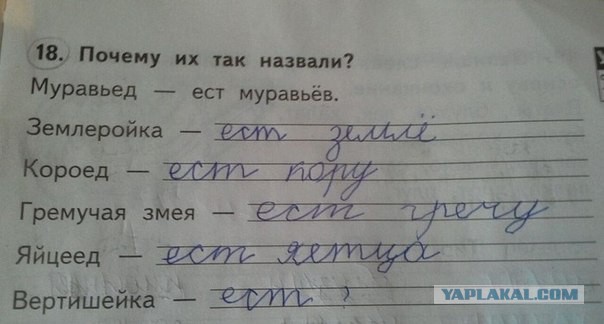 18. Почему их так назвали?
Муравьед — ест муравьёв.
Землеройка — ест землё
Короед — ест кору
Гремучая змея — ест гречу
Яйцеед — ест яетца
Вертишейка — ест ?
YAPLAKAL.COM